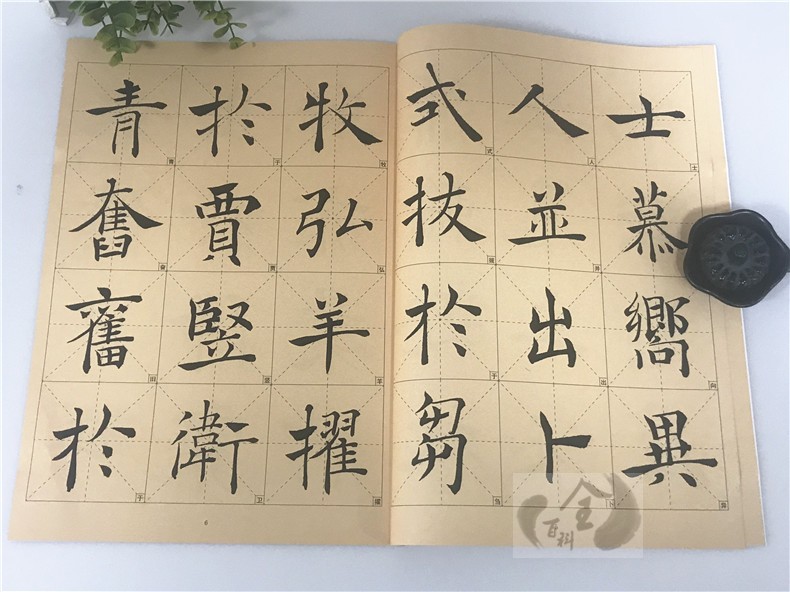 士慕嚮異
人並出卜
式拔於芻
牧弘羊擢
於賈豎衛
青奮奮於
6
全
百科